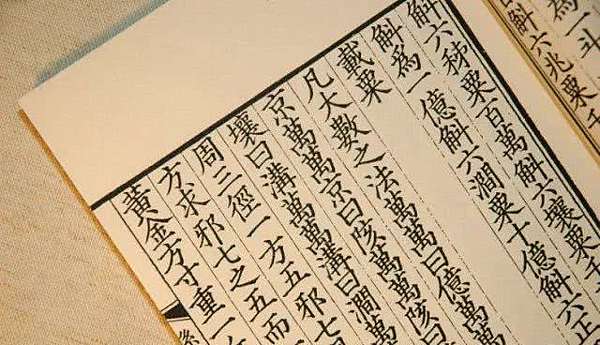 為一斗
斛六兆粟千
斛六秭粟百萬斛六壤粟
斛為一億斛六澗粟十億斛六正
載粟
凡大數之法萬萬曰億萬
京萬萬京曰陔萬萬陔曰
壤曰溝萬萬溝曰澗萬
周三徑一方五邪七
方求邪七之五而
黃金方寸重一